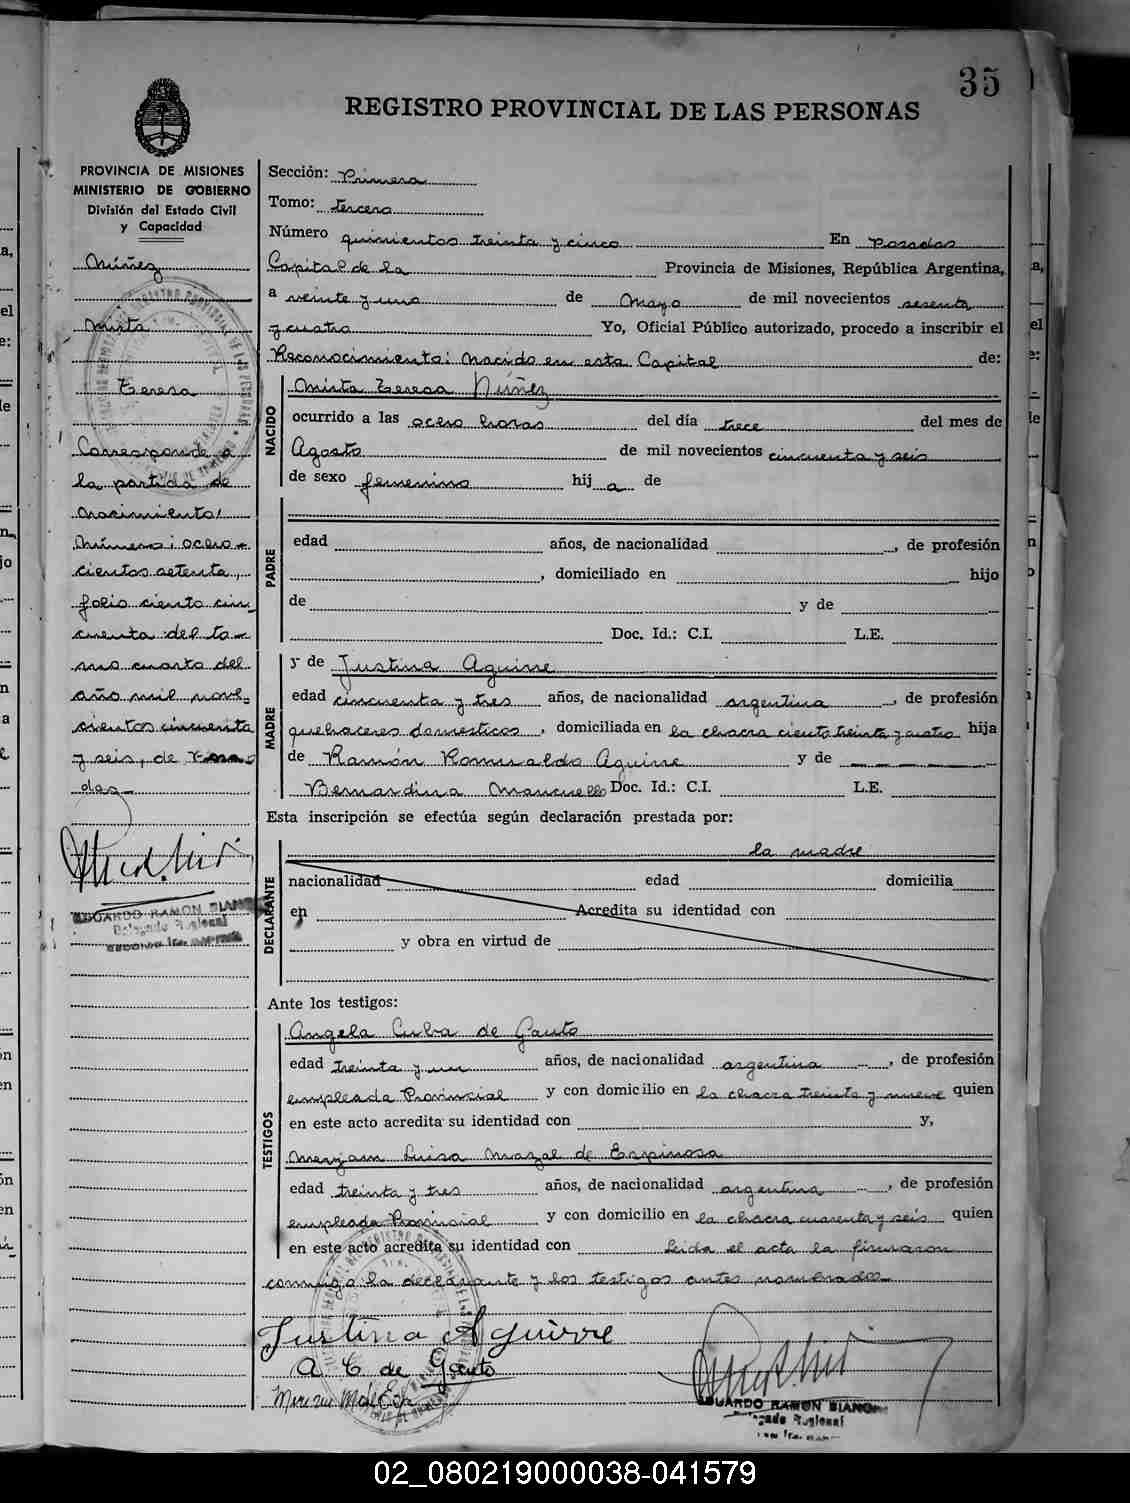 35
REGISTRO PROVINCIAL DE LAS PERSONAS
PROVINCIA DE MISIONES
MINISTERIO DE GOBIERNO
División del Estado Civil
y Capacidad
Núñez
Mirta
Teresa
Corresponde a
la partida de
nacimiento:
Número: ocho-
cientos setenta,
folio ciento cin-
cuenta del to-
mo cuarto del
año mil nove-
cientos cincuenta
y seis, de Posa-
das-
EDUARDO RAMON BIANC
Delegado Regional
Sección: Primera
Tomo: tercero
Número quinientos treinta y cinco En Posadas
Capital de la Provincia de Misiones, República Argentina,
a veinte y uno de Mayo de mil novecientos sesenta
y cuatro Yo, Oficial Público autorizado, procedo a inscribir el
Reconocimiento: Nacido en esta Capital de:
NACIDO
Mirta Teresa Núñez
ocurrido a las ocho horas del día trece del mes de
Agosto de mil novecientos cincuenta y seis
de sexo femenino hij a de
PADRE
edad años, de nacionalidad , de profesión
, domiciliado en hijo
de y de
Doc. Id.: C.I. L.E.
MADRE
y de Justina Aguirre
edad cincuenta y tres años, de nacionalidad argentina , de profesión
quehaceres domesticos , domiciliada en la chacra ciento treinta y cuatro hija
de Ramón Romualdo Aguirre y de
Bernardina Mancuello Doc. Id.: C.I. L.E.
Esta inscripción se efectúa según declaración prestada por:
DECLARANTE
la madre
nacionalidad edad domicilia
en Acredita su identidad con
y obra en virtud de
Ante los testigos:
TESTIGOS
Angela Cuba de Gauto
edad treinta y un años, de nacionalidad argentina , de profesión
empleada Provincial y con domicilio en la chacra treinta y nueve quien
en este acto acredita su identidad con y,
Meryam Luisa Mazal de Espinosa
edad treinta y tres años, de nacionalidad argentina , de profesión
empleada Provincial y con domicilio en la chacra cuarenta y seis quien
en este acto acredita su identidad con Leida el acta la firmaron
conmigo la declarante y los testigos antes nombrados-
Justina Aguirre
A C de Gauto
EDUARDO RAMON BIANC
Delegado Regional
02_080219000038-041579